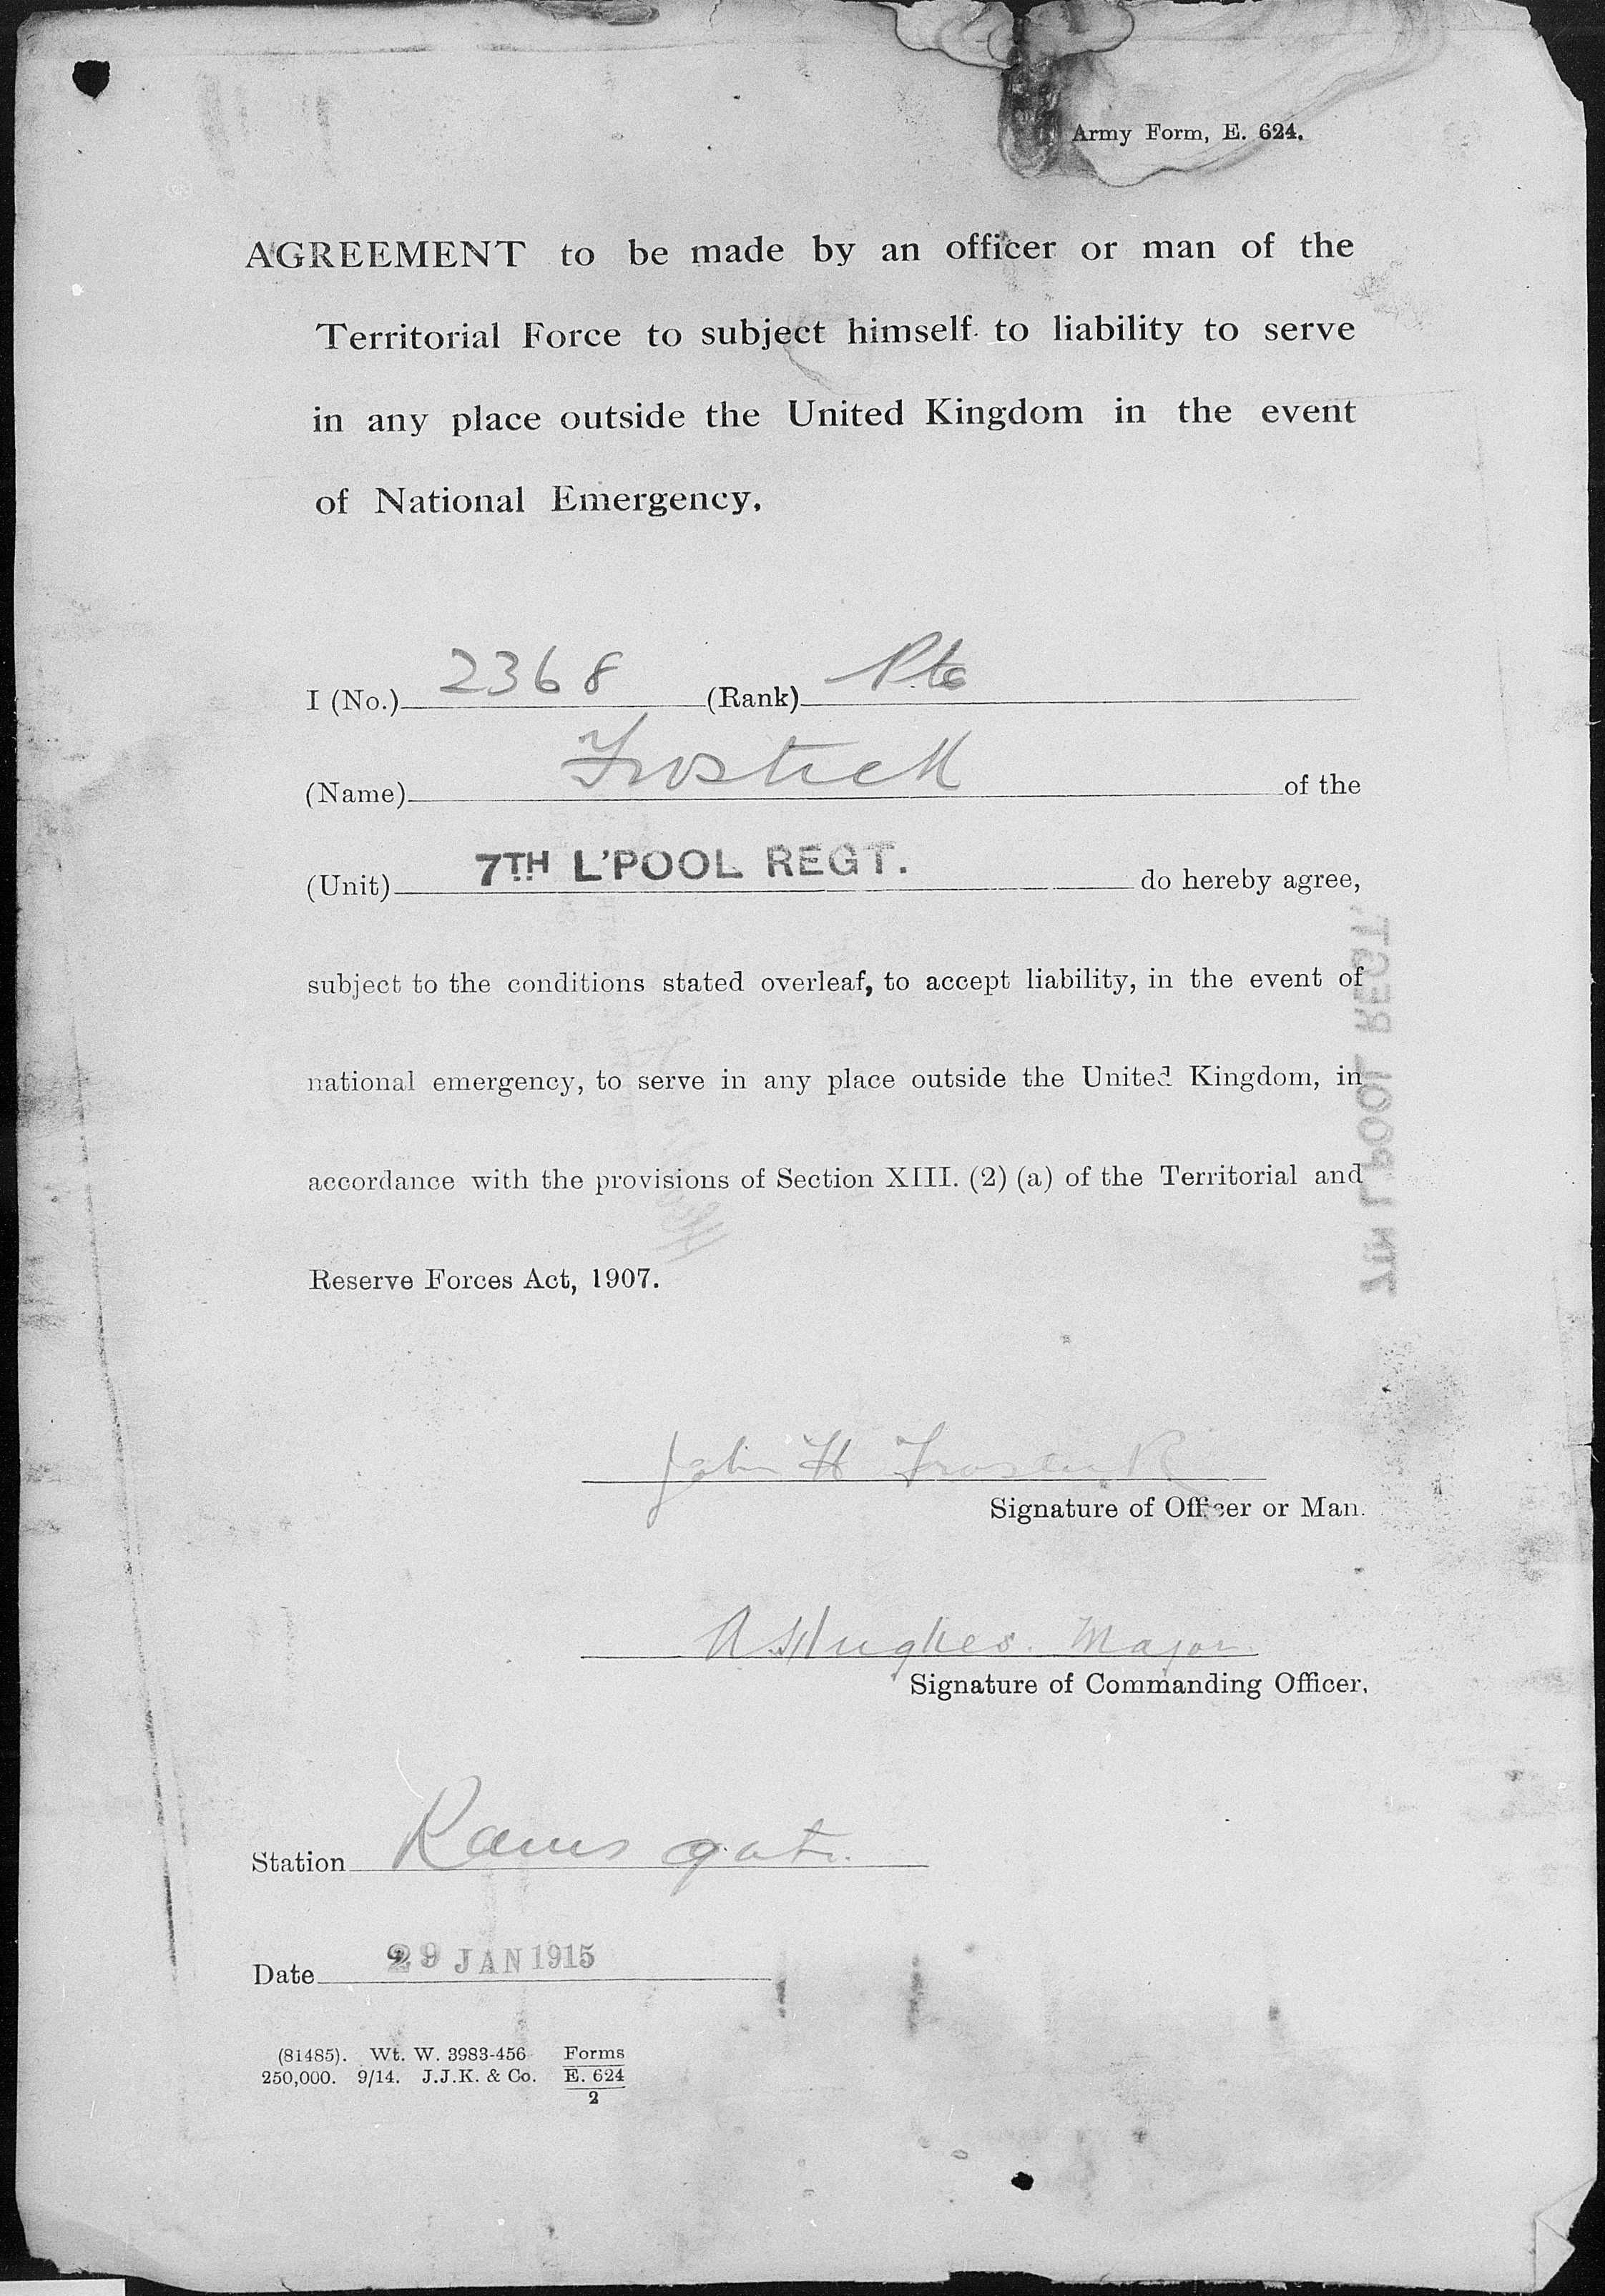 Army Form, E. 624.
AGREEMENT to be made by an officer or man of the
Territorial Force to subject himself to liability to serve
in any place outside the United Kingdom in the event
of National Emergency.
I (No.) 2368 (Rank) Pte
(Name) Frostick of the
(Unit) 7TH L'POOL REGT. do hereby agree,
subject to the conditions stated overleaf, to accept liability, in the event of
national emergency, to serve in any place outside the United Kingdom, in
accordance with the provisions of Section XIII. (2) (a) of the Territorial and
Reserve Forces Act, 1907.
7TH L'POOL REGT.
John H Frostick
Signature of Officer or Man.
Hughes. Major.
Signature of Commanding Officer.
Station Ramsgate.
Date 29 JAN 1915
(81485). Wt. W. 3983-456 Forms
250,000. 9/14. J.J.K. & Co. E. 624
2